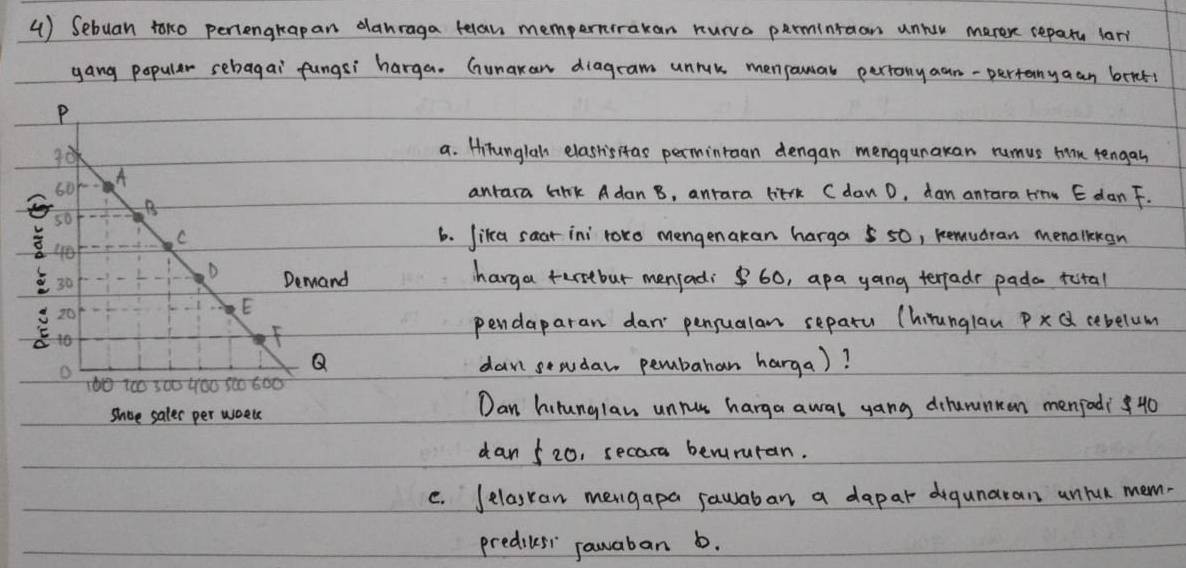 4) Sebuah toko perlengkapan olahraga telah memperkirakan kurva permintaan untuk merek sepatu lari
yang populer sebagai fungsi harga. Gunakan diagram untuk menjawab pertanyaan - pertanyaan brkt!
P
70
60
50
40
30
20
10
0
A
B
C
D
E
F
Price per pair ($)
Demand
Q
100 200 300 400 500 600
Shoe sales per week
a. Hitunglah elastisitas permintaan dengan menggunakan rumus titik tengah
antara titik A dan B, antara titik C dan D, dan antara titik E dan F.
b. Jika saat ini toko mengenakan harga $ 50, kemudian menaikkan
harga tersebut menjadi $ 60, apa yang terjadi pada total
pendapatan dari penjualan sepatu (hitunglah P x Q sebelum
dan sesudah perubahan harga)?
Dan hitunglah untuk harga awal yang diturunkan menjadi $ 40
dan $ 20, secara berurutan.
c. Jelaskan mengapa jawaban a dapat digunakan untuk mem-
prediksi jawaban b.